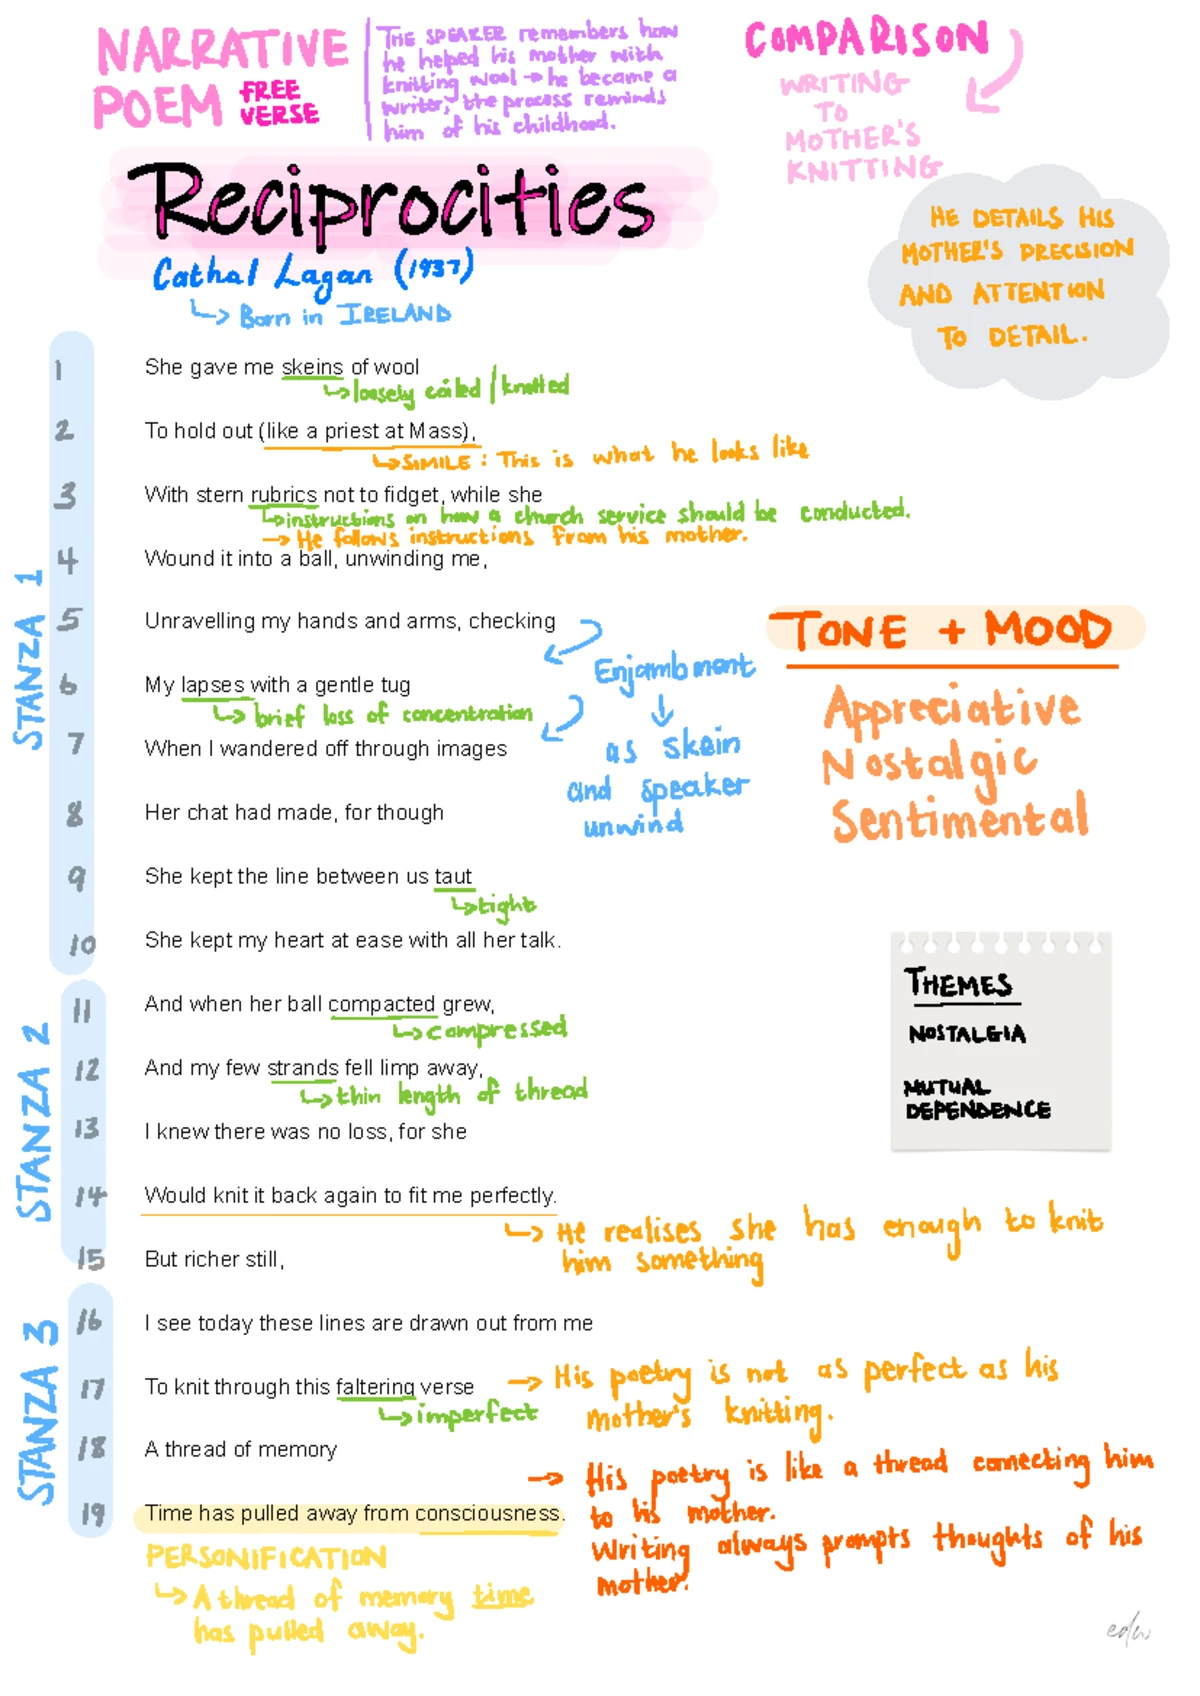 NARRATIVE
POEM FREE
VERSE
THE SPEAKER remembers how
he helped his mother with
knitting wool → he became a
writer, the process reminds
him of his childhood.
COMPARISON
WRITING
TO
MOTHER'S
KNITTING
Reciprocities
Cathal Lagan (1937)
↳ Born in IRELAND
HE DETAILS HIS
MOTHER'S PRECISION
AND ATTENTION
TO DETAIL.
STANZA 1
1 She gave me skeins of wool
↳ loosely coiled / knotted
2 To hold out (like a priest at Mass),
↳ SIMILE: This is what he looks like
3 With stern rubrics not to fidget, while she
↳ instructions on how a church service should be conducted.
→ He follows instructions from his mother.
4 Wound it into a ball, unwinding me,
5 Unravelling my hands and arms, checking
6 My lapses with a gentle tug
↳ brief loss of concentration
7 When I wandered off through images
Enjambment
↓
as skein
and speaker
unwind
8 Her chat had made, for though
9 She kept the line between us taut
↳ tight
10 She kept my heart at ease with all her talk.
TONE + MOOD
Appreciative
Nostalgic
Sentimental
THEMES
NOSTALGIA
MUTUAL
DEPENDENCE
STANZA 2
11 And when her ball compacted grew,
↳ compressed
12 And my few strands fell limp away,
↳ thin length of thread
13 I knew there was no loss, for she
14 Would knit it back again to fit me perfectly.
↳ He realises she has enough to knit
him something
15 But richer still,
STANZA 3
16 I see today these lines are drawn out from me
17 To knit through this faltering verse
↳ imperfect
→ His poetry is not as perfect as his
mother's knitting.
18 A thread of memory
19 Time has pulled away from consciousness.
→ His poetry is like a thread connecting him
to his mother.
Writing always prompts thoughts of his
mother.
PERSONIFICATION
↳ A thread of memory time
has pulled away.
edw